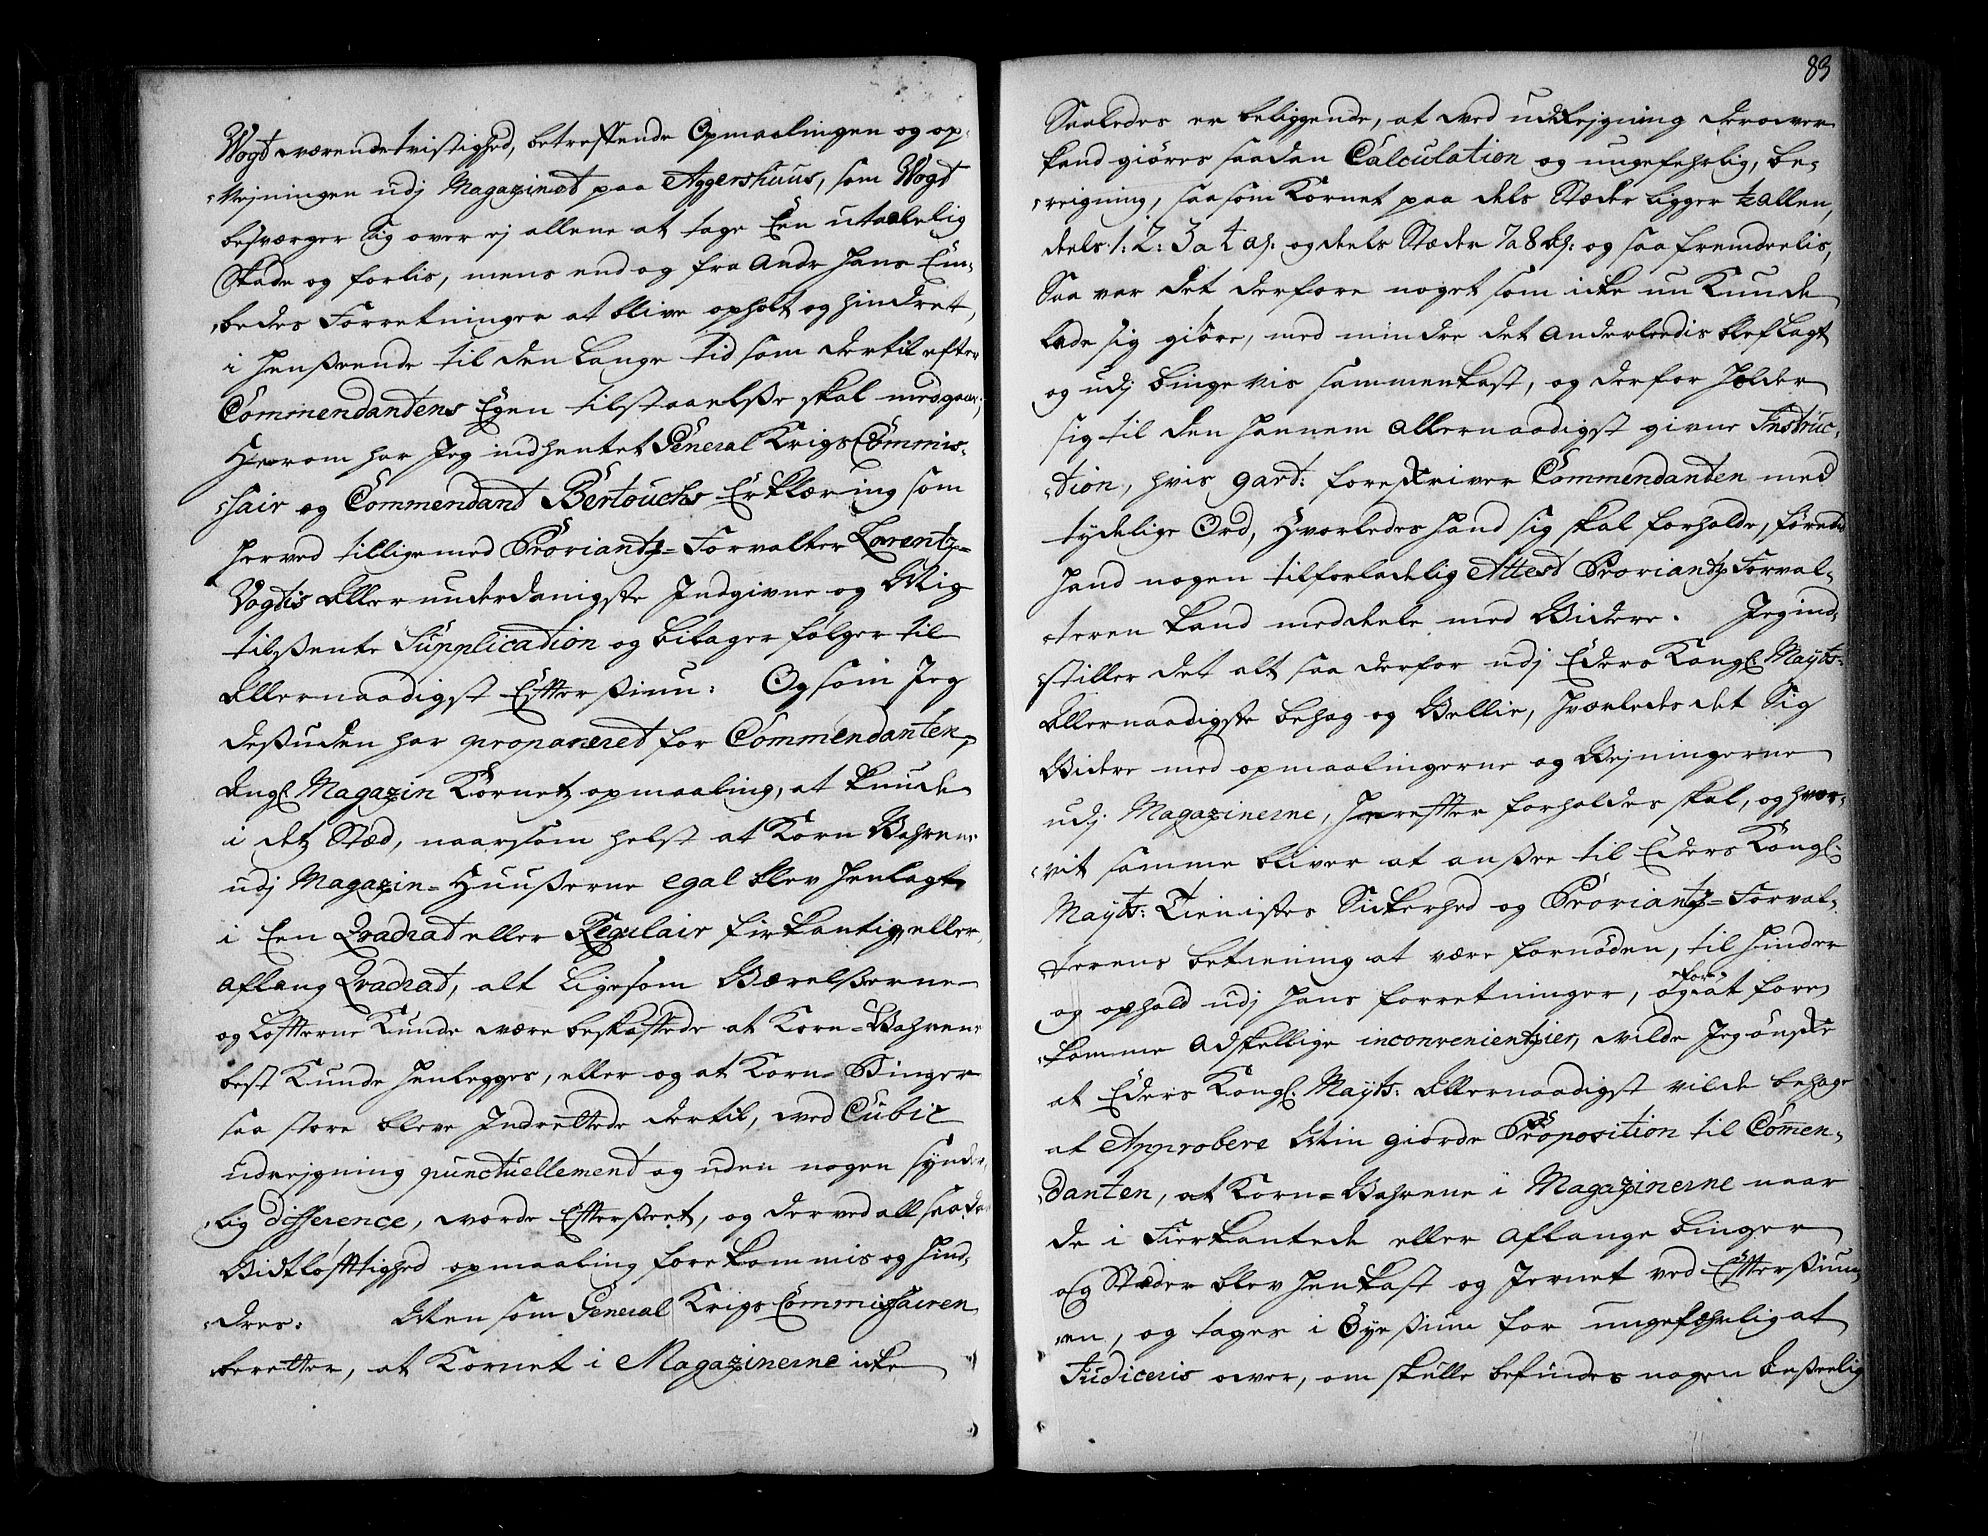 Vogt værende tvistighed, betreffende Opmaalingen og op-
vejningen udj Magazinet paa Aggershuus, som Vogt
besværger sig over ej allene at tage Een utaalelig
Skade og forlis, mens end og fra Andr hans Em-
bedes Forretninger at blive opholt og hindret,
i henseende til den lange tid som dertil efter
Commendantens Egen tilstaaelsse skal medgaae,
Herom har Jeg indhentet General Krigs Commis-
sair og Commendant Bertouchs Erklæring som
herved tillige med Proviantz-Forvalter Lorentz
Vogtis Allerunderdanigste Indgivne og Mig
tilsente Supplication og bilager følger til
Allernaadigst Efftersiun: Og som Jeg
dessuden har proponeret for Commendanten,
Angl. Magazin Kornetz opmaaling, at kunde
i detz Stæd, naarsom helst at Korn Vahrene
udj Magazin-Huusserne egal blev henlagt
i Een Qvadrat eller Regulair firkantig, eller
aflang Qvadrat, alt ligesom Værelsserne
og Loffterne kunde være beskaffede at Korn-Vahrene
best kunde henlegges, eller og at Korn-Binger
saa store bleve Indrettede dertil, ved Cubic
udrejgning punctuellement og uden nogen synder-
lig difference, worde Effterseet, og derved all saadan
Vidtløfftighed opmaaling forekommis og hind-
dres. Men som General Krigs Commissairen
beretter, at Kornet i Magazinerne icke
83
Saaledes er beliggende, at ved udrejgning derover
kand giøres saadan Calculation og ungefehrlig, be-
reigning, saasom Kornet paa dels Stæder ligger ½ allen,
deels 1: 2: 3 a 4 al: og deels Stæder 7 a 8 al: og saa fremdeelis,
Saa var det derfore noget som icke nu kunde
lade sig giøre, med mindre det anderleedis blef lagt
og udj binge vis sammenkast, og derfor holder
sig til den hannem allernaadigst givne Instruc-
tion, hvis 9art: foreskriver Commendanten med
tydelige Ord, hvorledes hand sig skal forholde, førend
hand nogen tilforladelig Attest Proviantz Forval-
teren kand meddele med Videre. Jeg ind-
stiller det alt saa derfor udj Eders Kongl: Mayts:
Allernaadigste behag og Vellie, hvorledes det sig
Videre med opmaalingerne og Vejningerne
udj Magazinerne, herefter forholdes skal, og hvor-
vit samme bliver at ansee til Eders Kongl:
Mayts: Tienistes Sickerhed og Proviantz-Forval-
terens betiening at være fornøden, til hinder
og ophold udj hans forretninger, og for at fore-
komme adskellige inconvenientzier, vilde Jeg ønske
at Eders Kongl: Mayts: Allernaadigst vilde behage
at Approbere Min giorde Proposition til Commen-
danten, at Korn-Vahrene i Magazinerne naar
de i Fierkantede eller Aflange binger
og Stæder blev henkast og Jevnet ved Efftersiun-
en, og tages i Øyesiun for ungefæhrlig at
Judiceris over, om skulle befindes nogen kiensselig